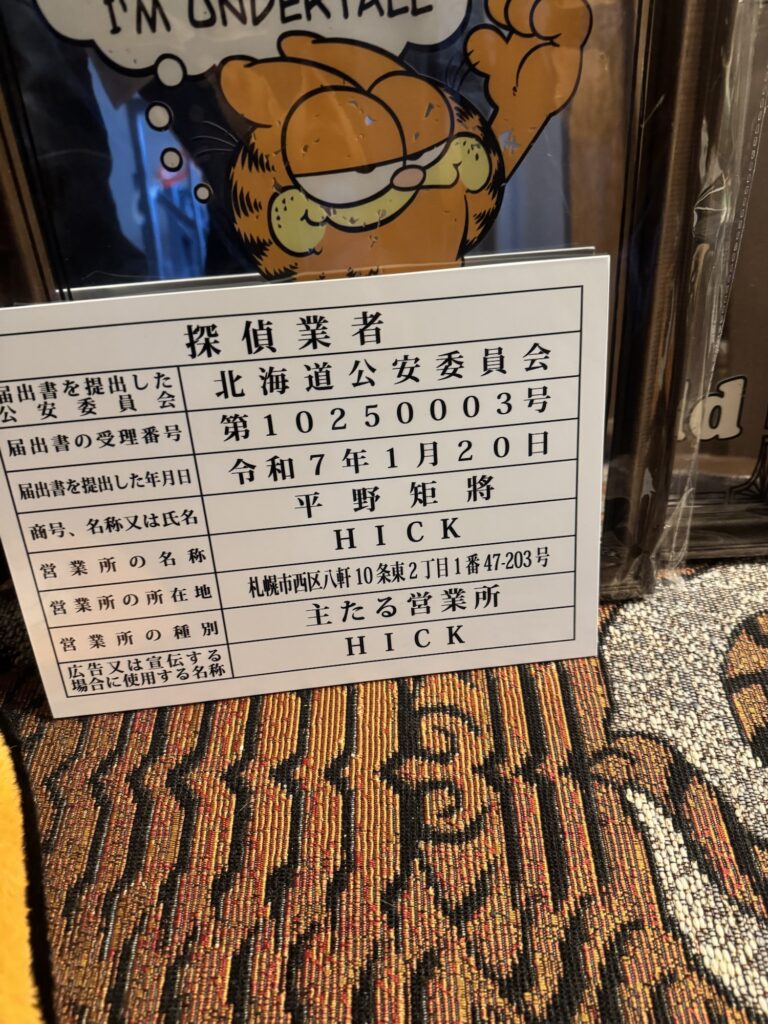 I'M UNDERTALL
探偵業者
届出書を提出した
公安委員会
北海道公安委員会
届出書の受理番号
第10250003号
届出書を提出した年月日
令和7年1月20日
商号、名称又は氏名
平野矩將
営業所の名称
HICK
営業所の所在地
札幌市西区八軒10条東2丁目1番47-203号
営業所の種別
主たる営業所
広告又は宣伝する
場合に使用する名称
HICK